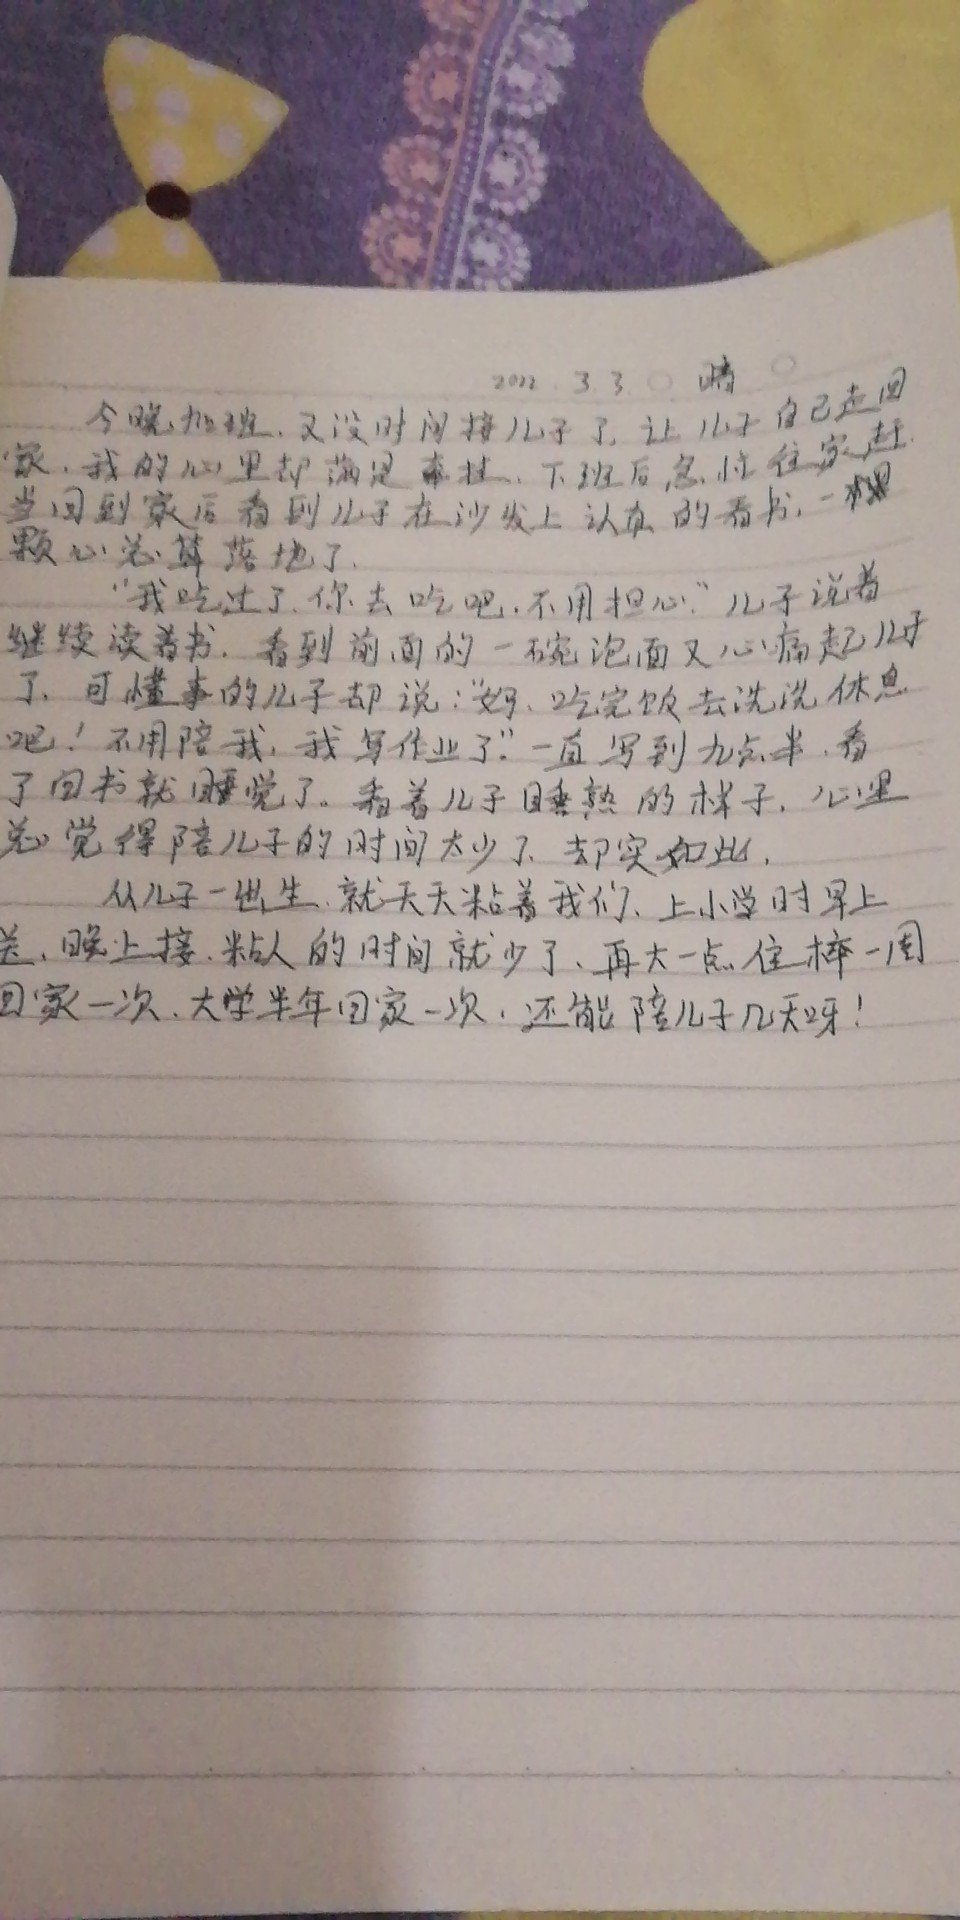 2022 3.3 晴
今晚加班，又没时间接儿子了，让儿子自己走回
家，我的心里却满是牵挂，下班后急忙往家赶，
当回到家后看到儿子在沙发上认真的看书，一
颗心总算落地了，
“我吃过了，你去吃吧，不用担心”儿子说着
继续读着书，看到前面的一碗泡面又心痛起儿子
了，可懂事的儿子却说：“妈，吃完饭去洗洗休息
吧！不用陪我，我写作业了”一直写到九点半，看
了回书就睡觉了。看着儿子睡熟的样子，心里
总觉得陪儿子的时间太少了，却实如此，
从儿子一出生，就天天粘着我们，上小学时早上
送，晚上接，粘人的时间就少了，再大一点，住一周
回家一次，大学半年回家一次，还能陪儿子几天呀！